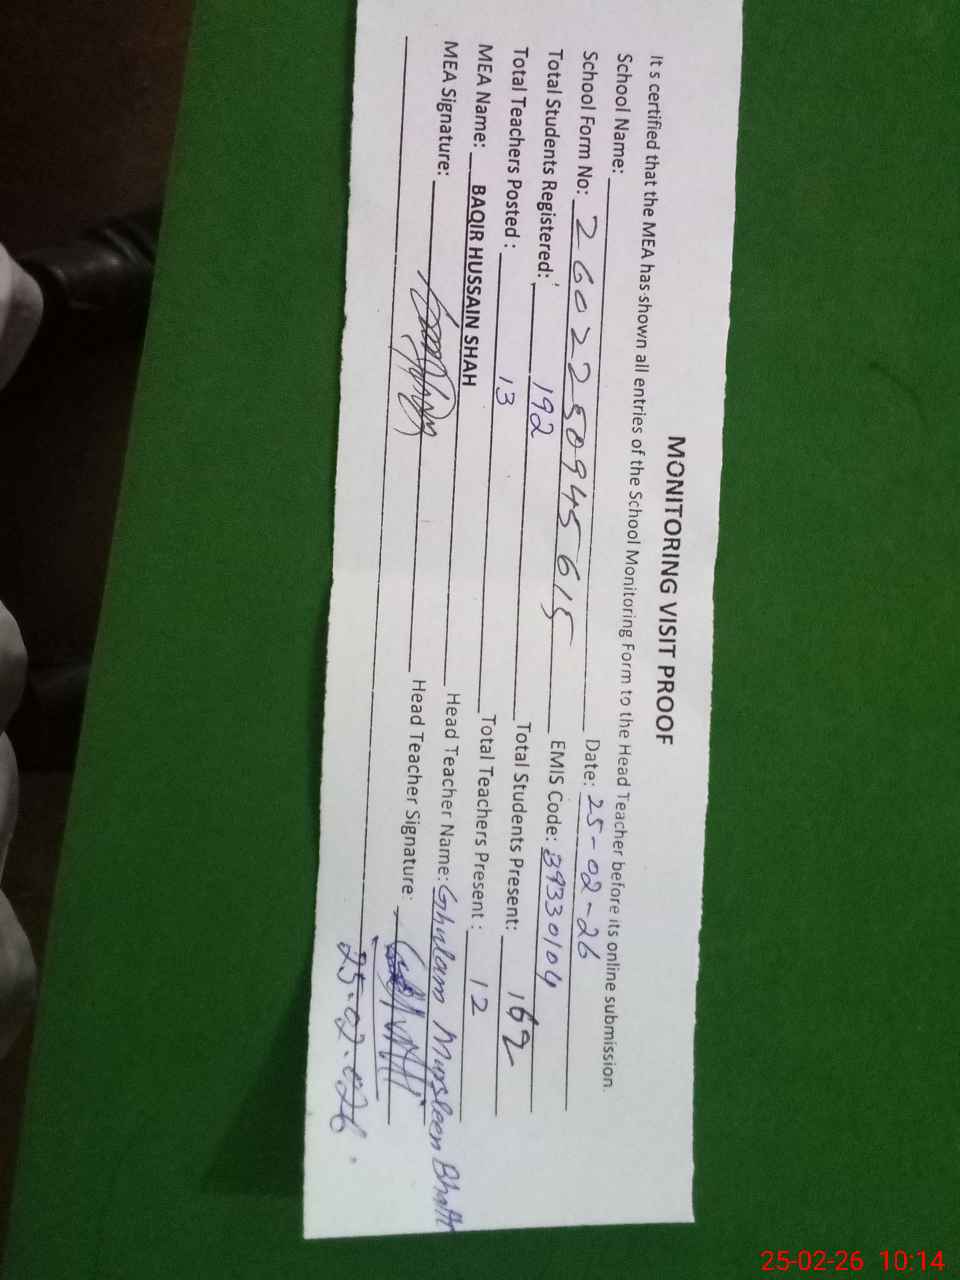 MONITORING VISIT PROOF
It s certified that the MEA has shown all entries of the School Monitoring Form to the Head Teacher before its online submission.
School Name: Date: 25-02-26
School Form No: 2602250945615 EMIS Code: 39330104
Total Students Registered: 192 Total Students Present: 162
Total Teachers Posted : 13 Total Teachers Present : 12
MEA Name: BAQIR HUSSAIN SHAH Head Teacher Name: Ghulam Mursleen Bhatti
MEA Signature: Head Teacher Signature:
25-02-026.
25-02-26 10:14